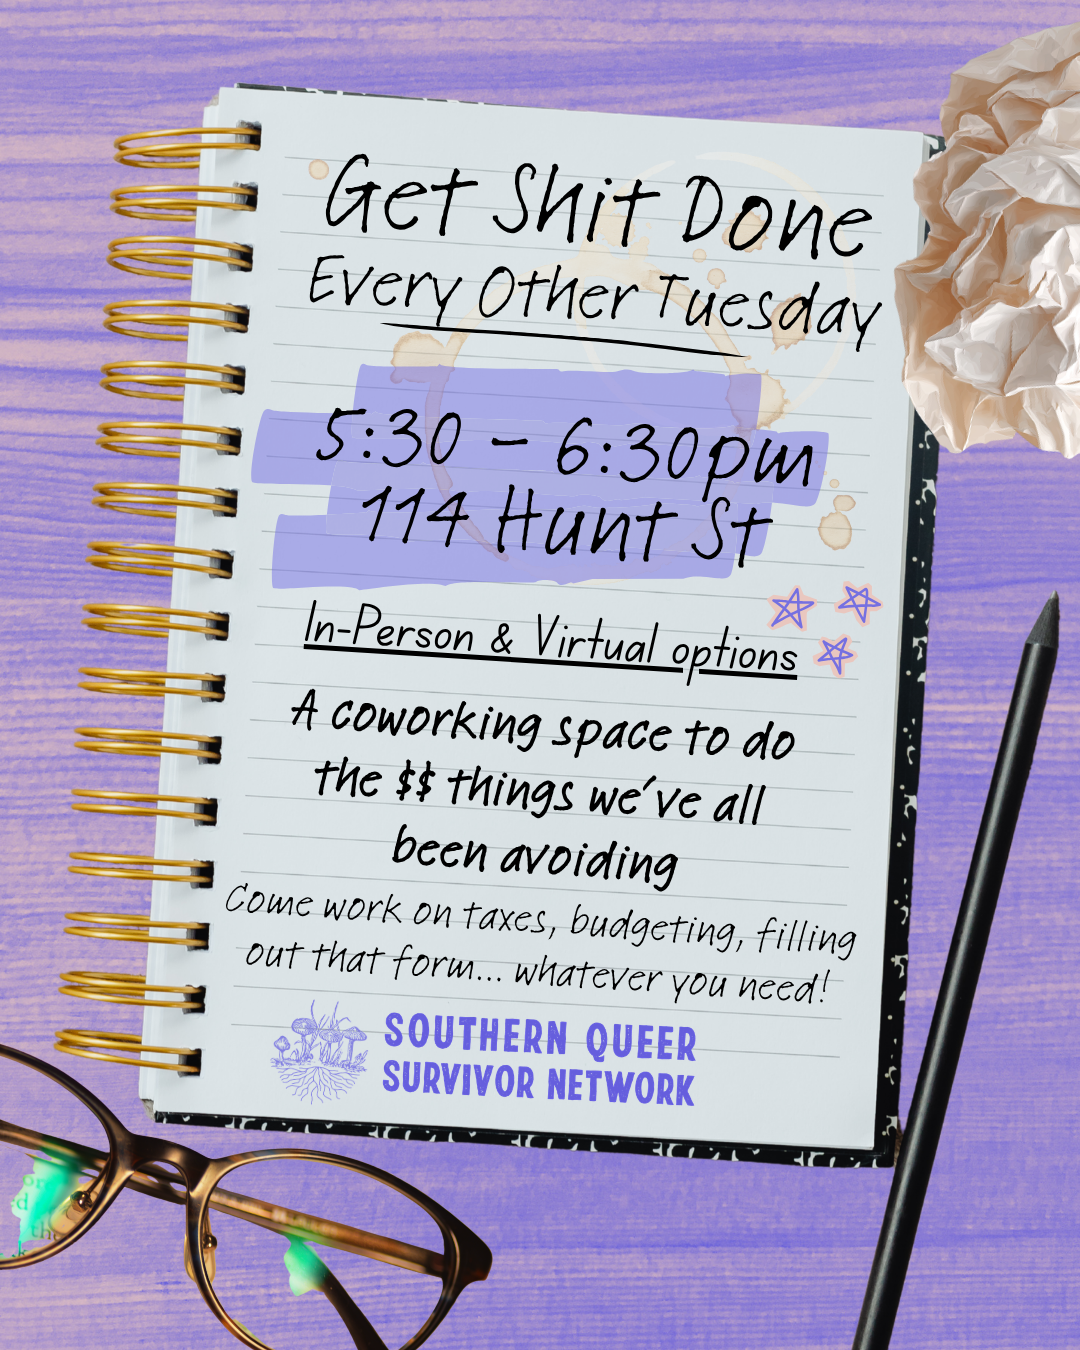 Get Shit Done
Every Other Tuesday
5:30 - 6:30pm
114 Hunt St
In-Person & Virtual options
A coworking space to do
the $$ things we've all
been avoiding
Come work on taxes, budgeting, filling
out that form... whatever you need!
SOUTHERN QUEER
SURVIVOR NETWORK